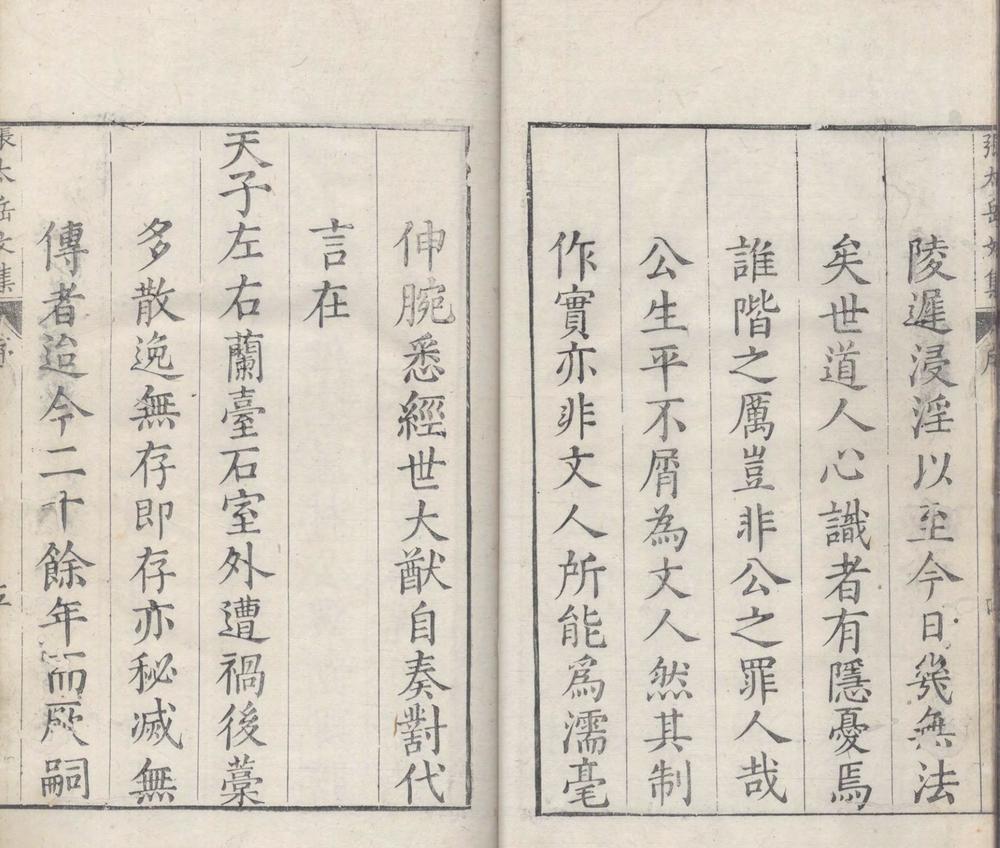 陵遲浸淫以至今日幾無法
矣世道人心識者有隱憂焉
誰階之厲豈非公之罪人哉
公生平不屑為文人然其制
作實亦非文人所能爲濡毫
伸腕悉經世大猷自奏對代
言在
天子左右蘭臺石室外遭禍後藁
多散逸無存即存亦秘滅無
傳者迨今二十餘年而厥嗣
張太岳文集